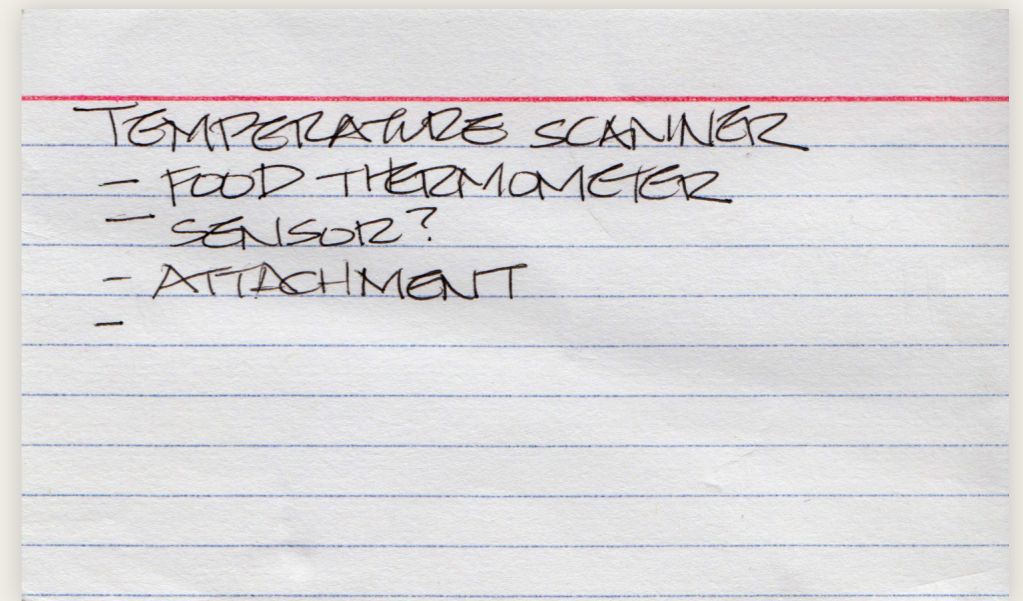 TEMPERATURE SCANNER
- FOOD THERMOMETER
- SENSOR?
- ATTACHMENT
-